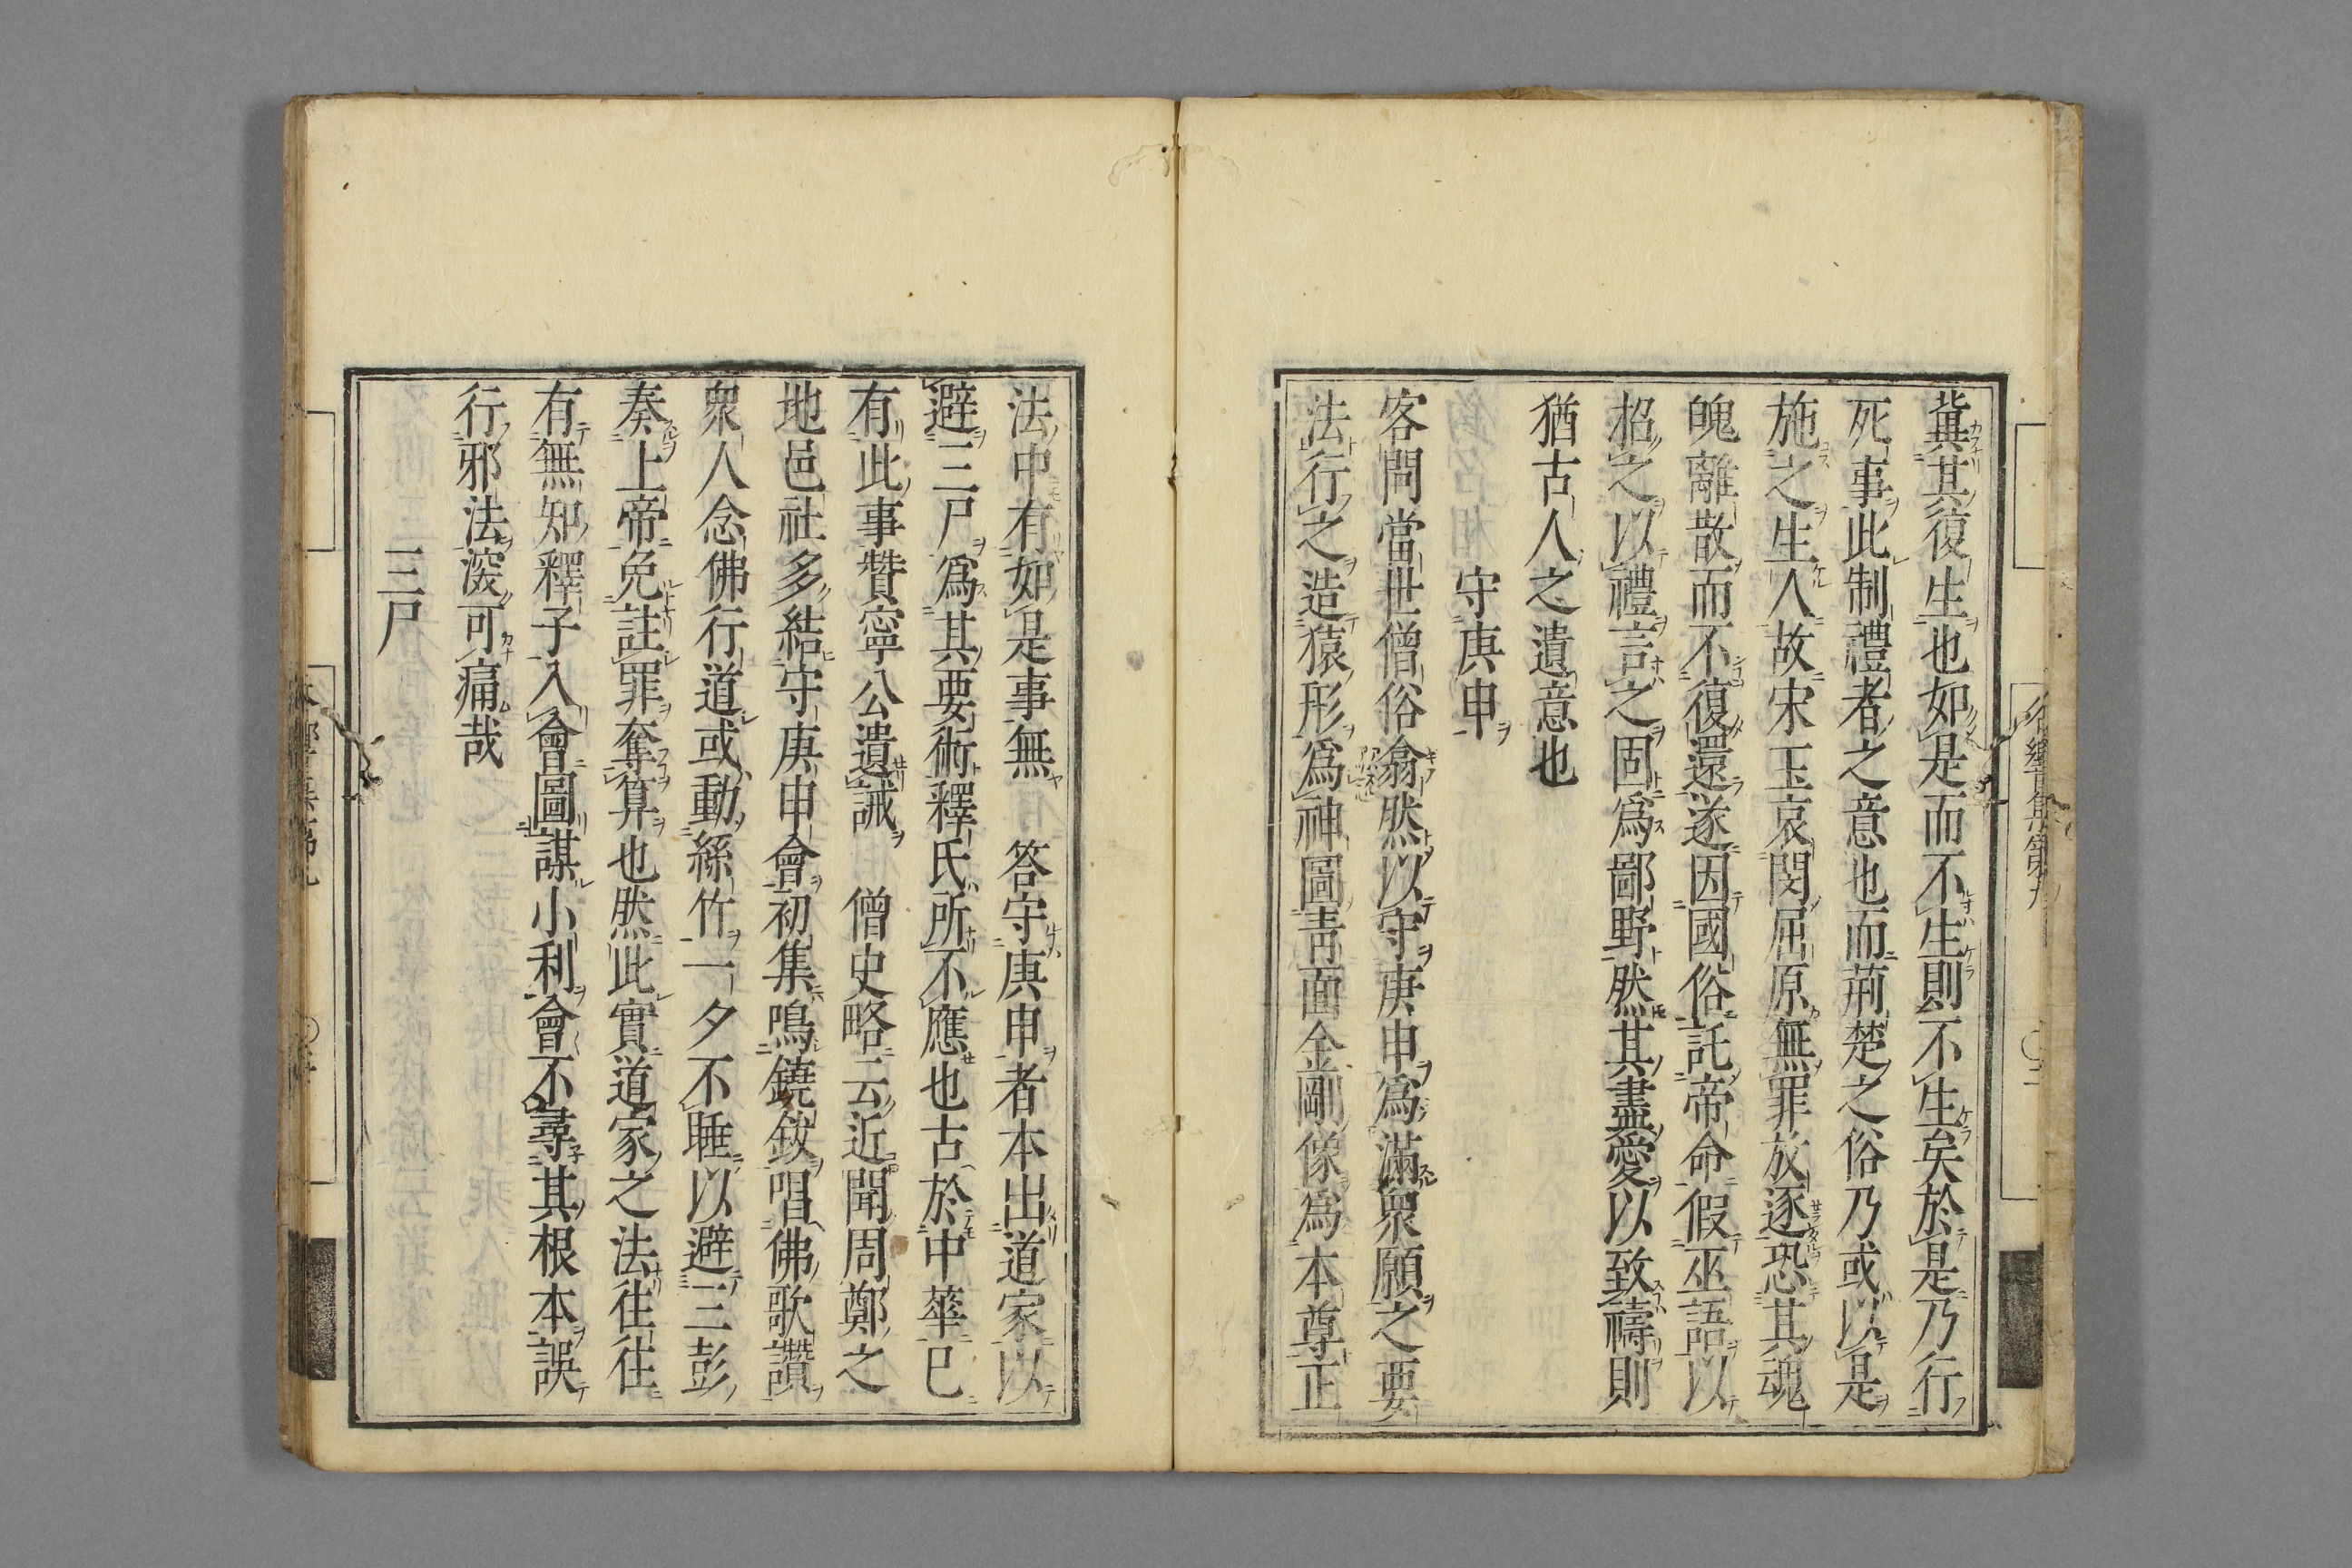 冀其復生也如是而不生則不生矣於是乃行
死事此制禮者之意也而荊楚之俗乃或以是
施之生人故宋玉哀閔屈原無罪放逐恐其魂
魄離散而不復還遂因國俗託帝命假巫語以
招之以禮言之固爲鄙野然其盡愛以致禱則
猶古人之遺意也
守庚申
客問當世僧俗翕然以守庚申爲滿衆願之要
法行之造猿形爲神圖靑面金剛像爲本尊正
法中有如是事無 答守庚申者本出道家以
避三尸爲其要術釋氏所不應也古於中華已
有此事贊寧公遺誡 僧史略云近聞周鄭之
地邑社多結守庚申會初集鳴鐃鈸唱佛歌讚
衆人念佛行道或動絲竹一夕不睡以避三彭
奏上帝免註罪奪算也然此實道家之法往往
有無知釋子入會圖謀小利會不尋其根本誤
行邪法深可痛哉
三尸